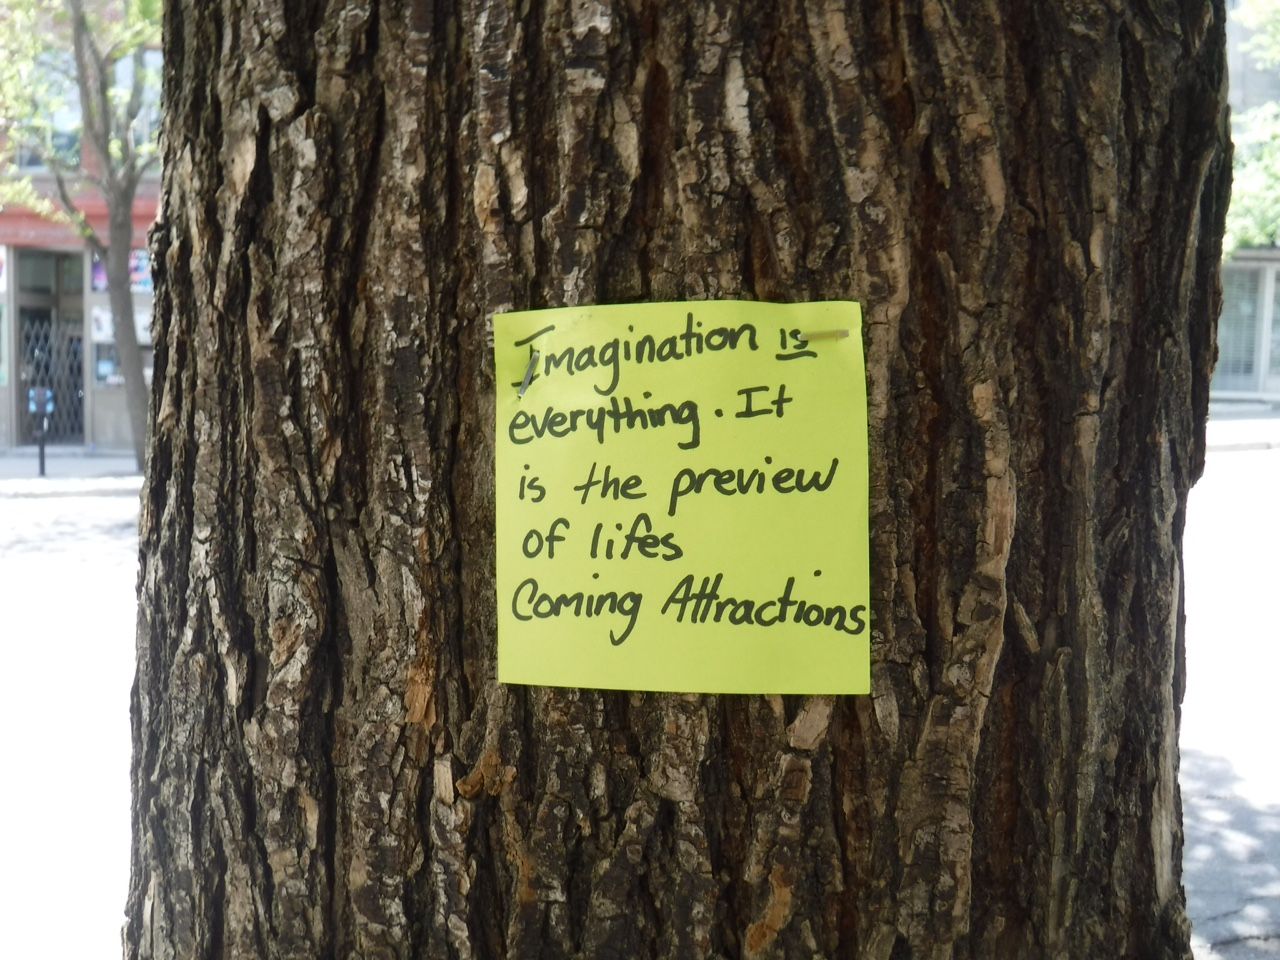 Imagination is
everything. It
is the preview
of lifes
Coming Attractions